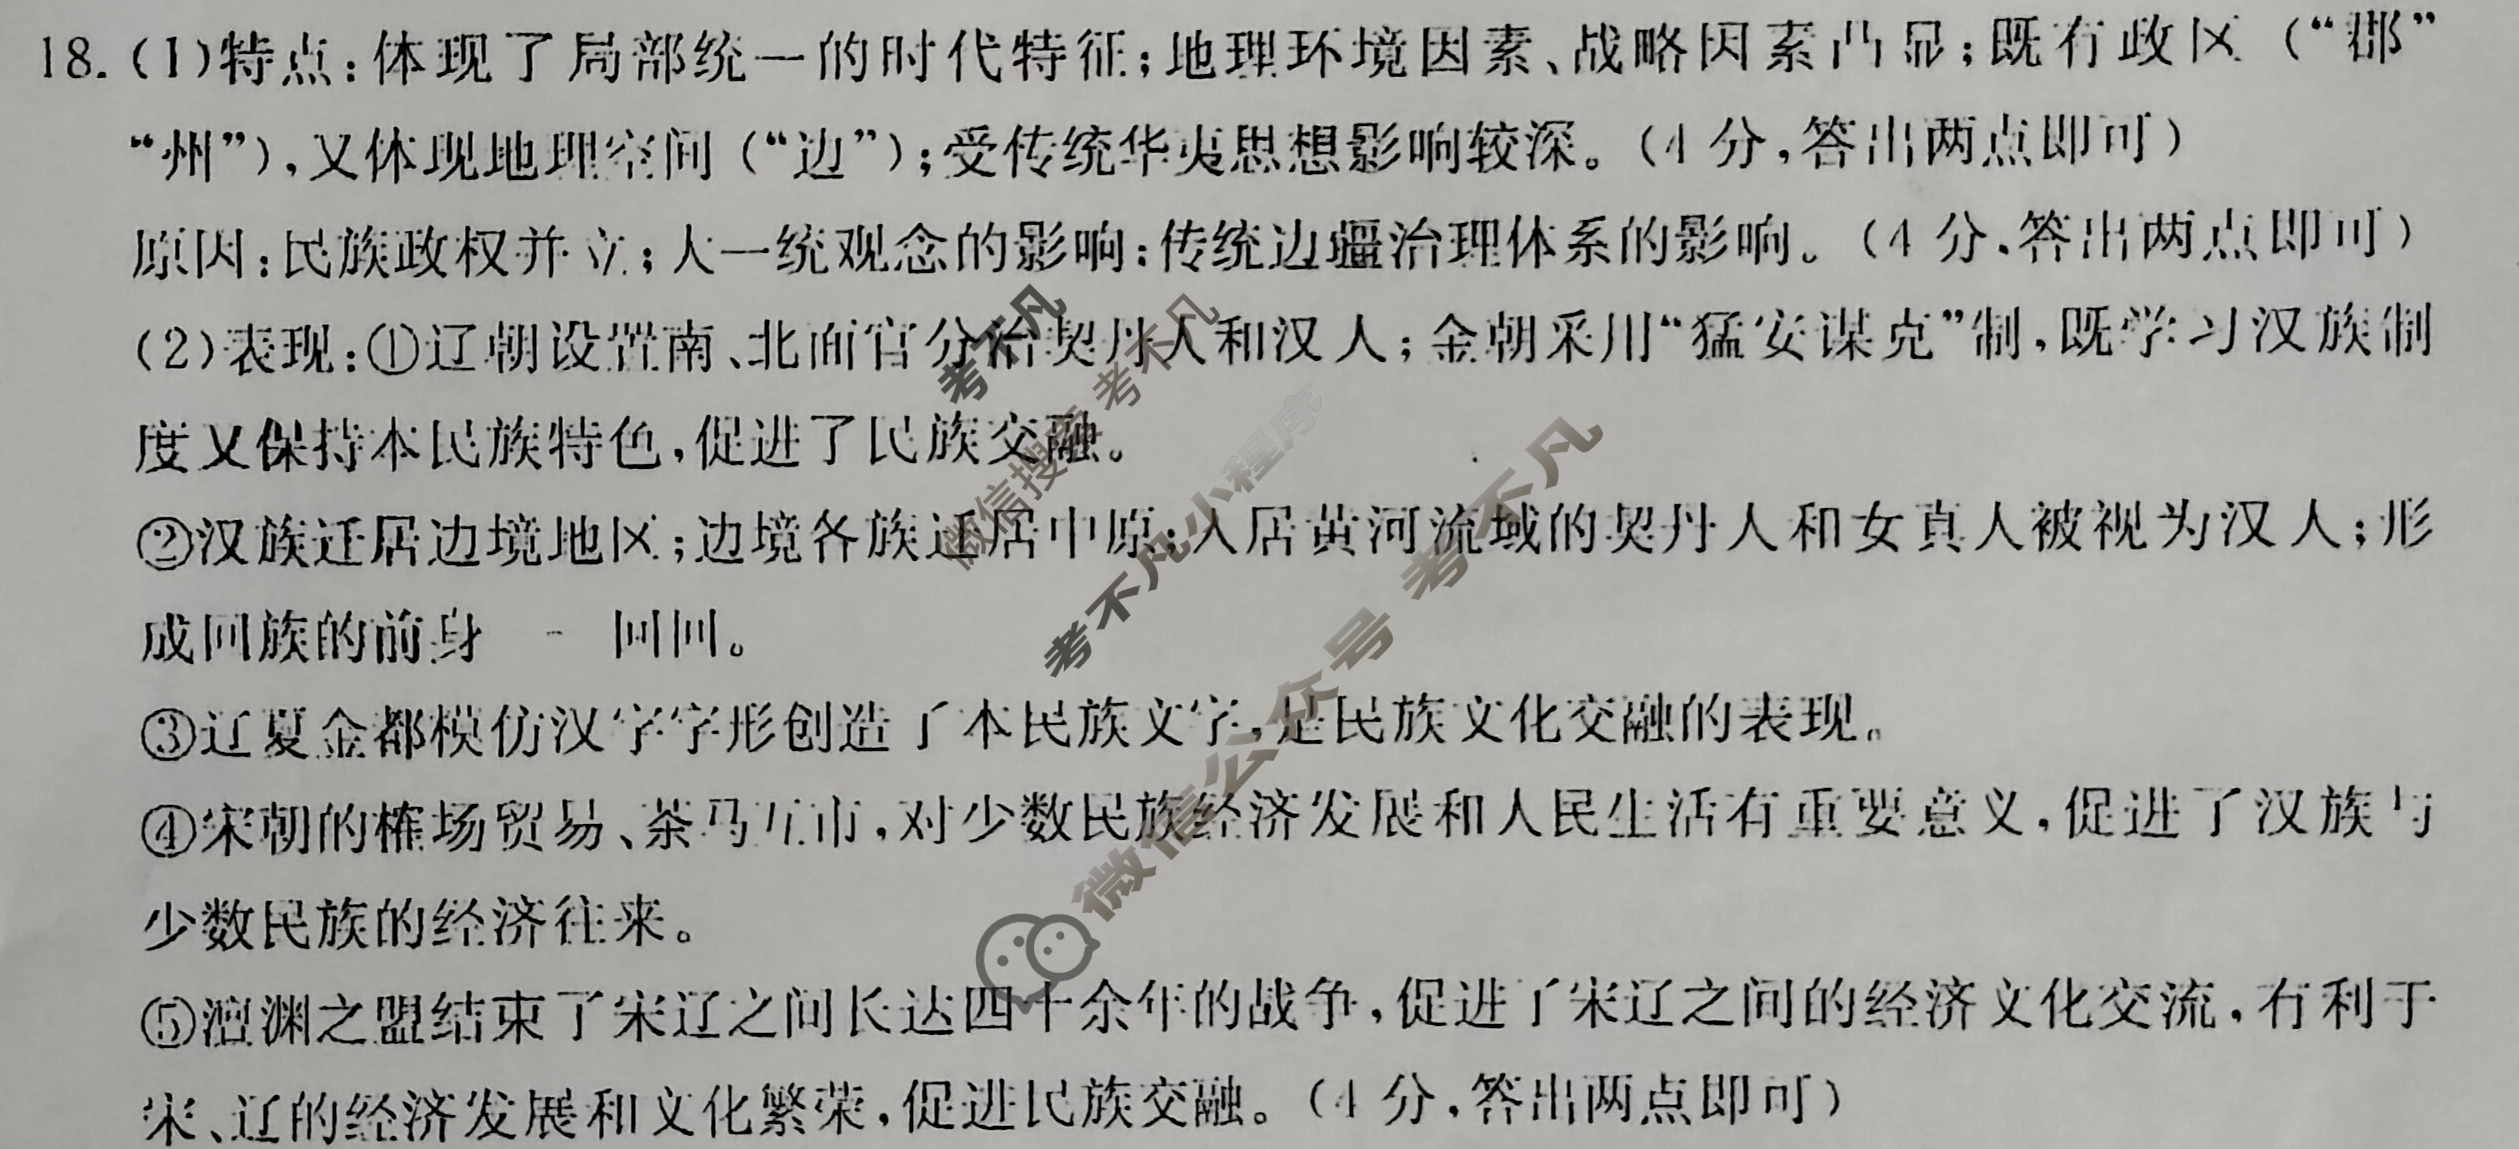 18.(1)特点:体现了局部统一的时代特征;地理环境因素、战略因素凸显;既有政区(“郡”
“州”),又体现地理空间(“边”);受传统华夷思想影响较深。(4分,答出两点即可)
原因:民族政权并立;大一统观念的影响;传统边疆治理体系的影响。(4分,答出两点即可)
(2)表现:①辽朝设置南、北面官分治契丹人和汉人;金朝采用“猛安谋克”制,既学习汉族制
度又保持本民族特色,促进了民族交融。
②汉族迁居边境地区;边境各族迁居中原;入居黄河流域的契丹人和女真人被视为汉人;形
成回族的前身——回回。
③辽夏金都模仿汉字字形创造了本民族文字,是民族文化交融的表现。
④宋朝的榷场贸易、茶马互市,对少数民族经济发展和人民生活有重要意义,促进了汉族与
少数民族的经济往来。
⑤澶渊之盟结束了宋辽之间长达四十余年的战争,促进了宋辽之间的经济文化交流,有利于
宋、辽的经济发展和文化繁荣,促进民族交融。(4分,答出两点即可)
考不凡
微信搜索 考不凡
考不凡小程序
微信公众号 考不凡